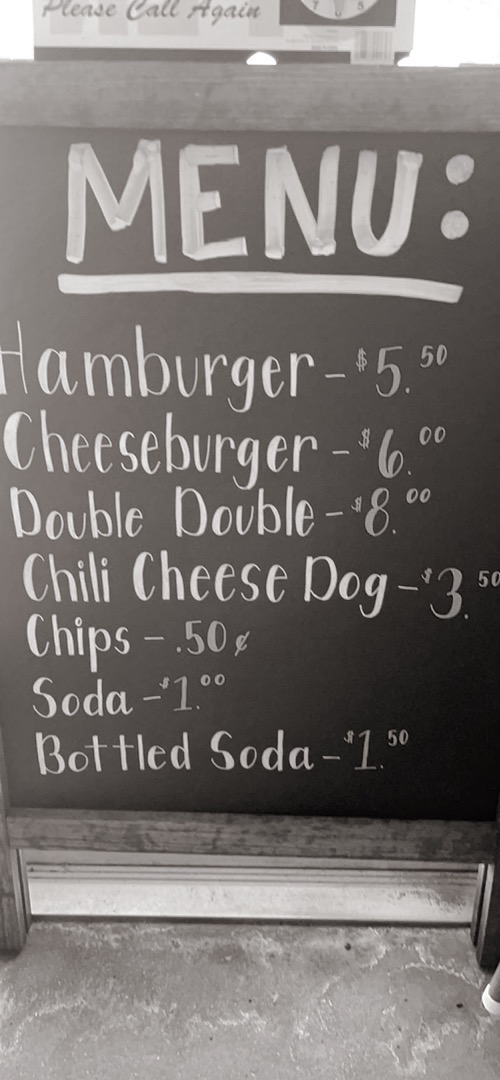 Please Call Again
MENU:
Hamburger - $5.50
Cheeseburger - $6.00
Double Double - $8.00
Chili Cheese Dog - $3.50
Chips - .50¢
Soda - $1.00
Bottled Soda - $1.50